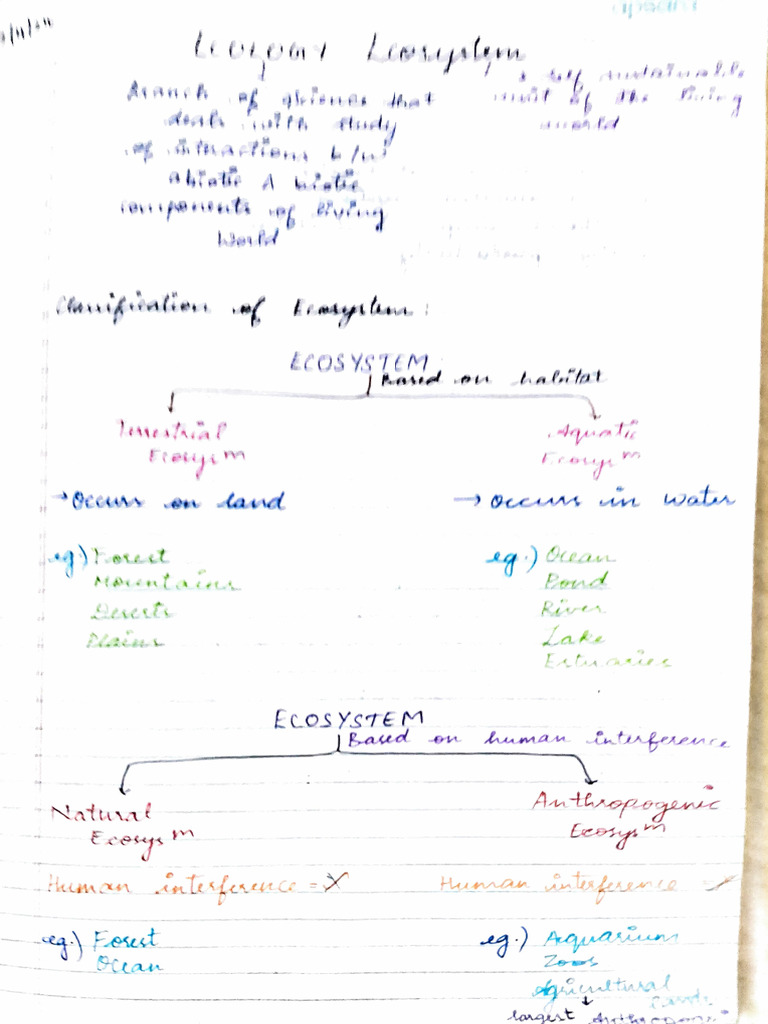 Ecology Ecosystem
Branch of science that
deals with study
of interactions b/w
abiotic & biotic
components of living
World
self sustainable
unit of the living
world
Classification of Ecosystem :
ECOSYSTEM
Based on habitat
Terrestrial
Ecosysᵐ
→ Occurs on land
eg.) Forest
Mountains
Deserts
Plains
Aquatic
Ecosysᵐ
→ Occurs in water
eg.) Ocean
Pond
River
Lake
Estuaries
ECOSYSTEM
Based on human interference
Natural
Ecosysᵐ
Human interference = ✗
eg.) Forest
Ocean
Anthropogenic
Ecosysᵐ
Human interference = ✓
eg.) Aquarium
Zoos
Agricultural
Lands
largest